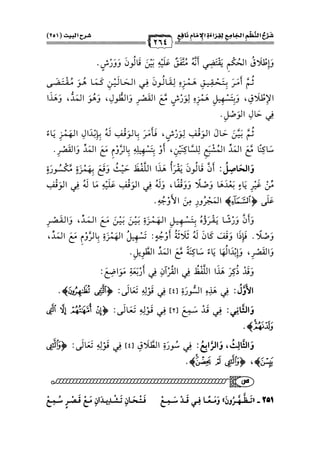 شَرْحُ النَّظْمِ الجَامِعِ لِقِرَاءَةِ الإِمَامِ نَافِعٍ
٢٦٤
شرح البيت (٢٥١)
وَإِطْلَاقُ الحُكْمِ يَقْتَضِي أَنَّهُ مُتَّفَقٌ عَلَيْهِ بَيْنَ قَالُونَ وَوَرْشٍ.
ثُمَّ أَمَرَ بِتَحْقِيقِ هَمْزِهِ لِقَالُونَ فِي الحَالَيْنِ كَمَا هُوَ مُقْتَضَى
الإِطْلَاقِ، وَبِتَسْهِيلِ هَمْزِهِ لِوَرْشٍ مَعَ القَصْرِ وَالطُّولِ، وَهُوَ المَدُّ، وَهَذَا
فِي حَالِ الوَصْلِ.
ثُمَّ بَيَّنَ حَالَ الوَقْفِ لِوَرْشٍ، فَأَمَرَ بِالوَقْفِ لَهُ بِإِبْدَالِ الهَمْزِ يَاءً
سَاكِنًا مَعَ المَدِّ المُشْبَعِ لِلسَّاكِنَيْنِ، أَوْ بِتَسْهِيلِهِ بِالرَّوْمِ مَعَ المَدِّ وَالقَصْرِ.
وَالحَاصِلُ: أَنَّ قَالُونَ يَقْرَأُ هَذَا اللَّفْظَ حَيْثُ وَقَعَ بِهَمْزَةٍ مَكْسُورَةٍ
مِنْ غَيْرِ يَاءٍ بَعْدَهَا وَصْلًا وَوَقْفًا، وَلَهُ فِي الوَقْفِ عَلَيْهِ مَا لَهُ فِي الوَقْفِ
عَلَى ﴿السَّمَآءِ﴾ المَجْرُورِ مِنَ الأَوْجُهِ.
وَأَنَّ وَرْشًا يَقْرَؤُهُ بِتَسْهِيلِ الهَمْزَةِ بَيْنَ بَيْنَ مَعَ المَدِّ، وَالقَصْرِ
وَصْلًا. فَإِذَا وَقَفَ كَانَ لَهُ ثَلَاثَةُ أَوْجُهٍ: تَسْهِيلُ الهَمْزَةِ بِالرَّوْمِ مَعَ المَدِّ،
وَالقَصْرِ، وَإِبْدَالُهَا يَاءً سَاكِنَةً مَعَ المَدِّ الطَّوِيلِ.
وَقَدْ ذُكِرَ هَذَا اللَّفْظُ فِي القُرْآنِ فِي أَرْبَعَةِ مَوَاضِعَ:
الأَوَّلُ: فِي هَذِهِ السُّورَةِ [٤] فِي قَوْلِهِ تَعَالَى: ﴿الَّٰٓـِٔى تَظَّهَّرُونَ﴾.
وَالثَّانِي: فِي قَدْ سَمِعَ [٢] فِي قَوْلِهِ تَعَالَى: ﴿إِنْ أُمَّهَٰتُهُمْ إِلَّا الَّٰٓـِٔى
وَلَدْنَهُمْ﴾.
وَالثَّالِثُ، وَالرَّابِعُ: فِي سُورَةِ الطَّلَاقِ [٤] فِي قَوْلِهِ تَعَالَى: ﴿وَالَّٰٓـِٔى
يَئِسْنَ﴾، ﴿وَالَّٰٓـِٔى لَمْ يَحِضْنَ﴾.
ص
٢٥١ ـ «تَظَّهَّرُونَ» وَمَعًا فِي قَدْ سَمِعْ فَتْحَانِ تَشْدِيدَانِ مَعْ قَصْرٍ سُمِعْ